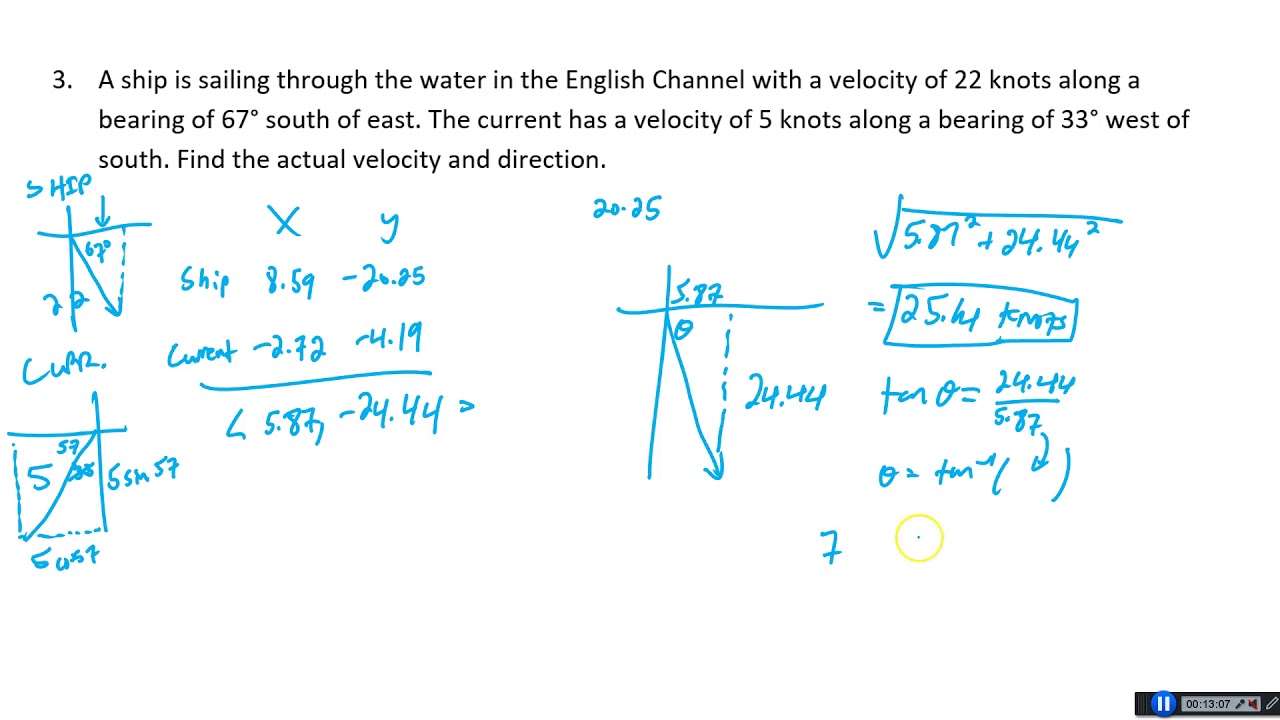 3. A ship is sailing through the water in the English Channel with a velocity of 22 knots along a
bearing of 67° south of east. The current has a velocity of 5 knots along a bearing of 33° west of
south. Find the actual velocity and direction.
SHIP
67°
22
X y
Ship 8.59 -20.25
Current -2.72 -4.19
< 5.87, -24.44 >
CURR.
57
5
5 sin 57
5 cos 57
20.25
5.87
θ
24.44
√5.87² + 24.44²
= 25.14 knots
tan θ = 24.44
5.87
θ = tan⁻¹( )
7
00:13:07